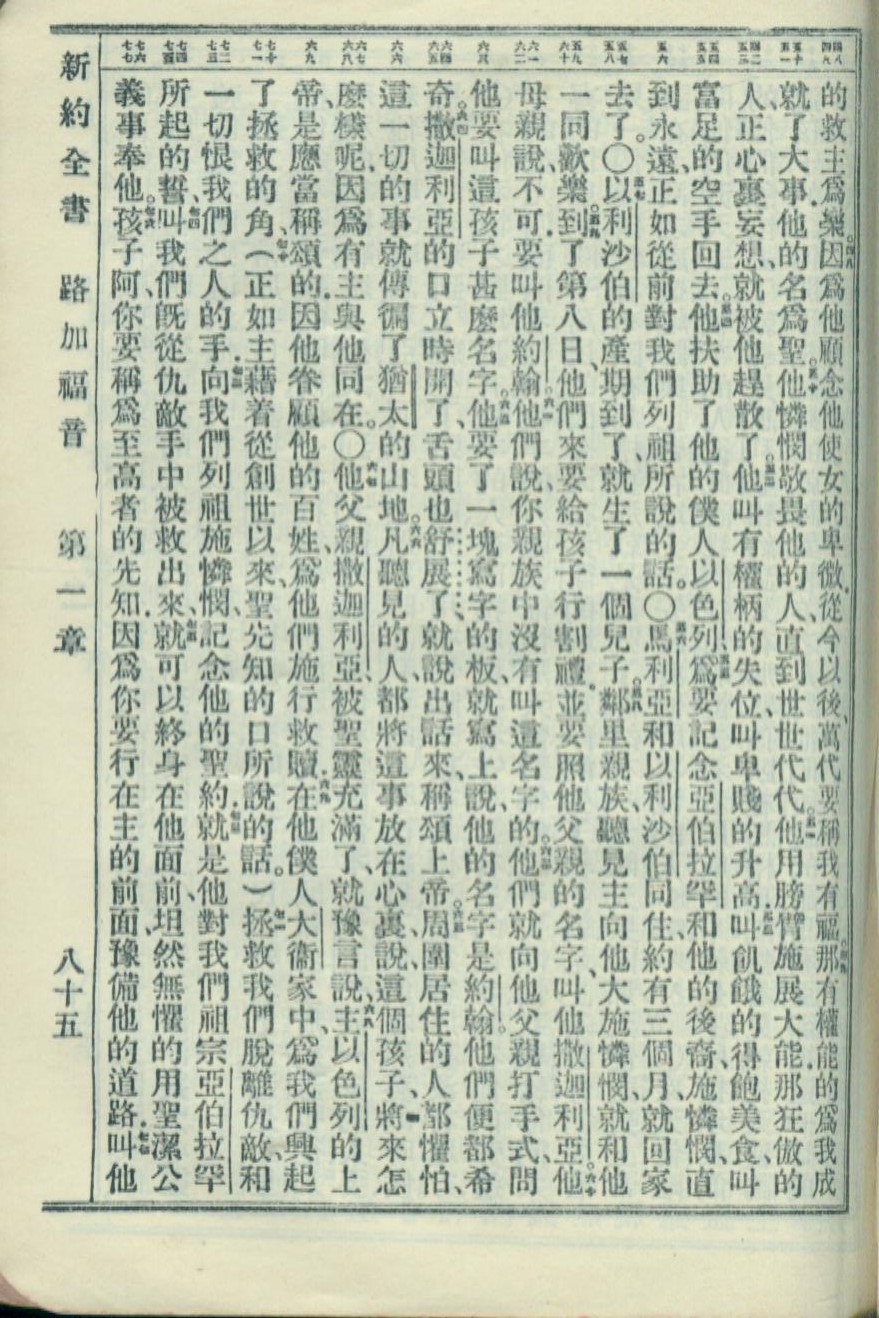 的救主爲樂、因爲他顧念他使女的卑微、從今以後、萬代要稱我有福。那有權能的爲我成
就了大事、他的名爲聖。他憐憫敬畏他的人、直到世世代代。他用膀臂施展大能、那狂傲的
人、正心裏妄想、就被他趕散了。他叫有權柄的失位、叫卑賤的升高、叫飢餓的得飽美食、叫
富足的空手回去。他扶助了他的僕人以色列、爲要記念亞伯拉罕和他的後裔、施憐憫、直
到永遠、正如從前對我們列祖所說的話。〇馬利亞和以利沙伯同住、約有三個月、就回家
去了。〇以利沙伯的產期到了、就生了一個兒子。鄰里親族、聽見主向他大施憐憫、就和他
一同歡樂。到了第八日、他們來要給孩子行割禮、並要照他父親的名字、叫他撒迦利亞。他
母親說、不可、要叫他約翰。他們說、你親族中沒有叫這名字的。他們就向他父親打手式、問
他要叫這孩子甚麼名字。他要了一塊寫字的板、就寫上說、他的名字是約翰。他們便都希
奇。撒迦利亞的口立時開了、舌頭也舒展了、就說出話來、稱頌上帝。周圍居住的人都懼怕、
這一切的事就傳徧了猶太的山地。凡聽見的人、都將這事放在心裏、說、這個孩子、將來怎
麼樣呢、因爲有主與他同在。〇他父親撒迦利亞、被聖靈充滿了、就豫言說、主以色列的上
帝、是應當稱頌的、因他眷顧他的百姓、爲他們施行救贖、在他僕人大衞家中、爲我們興起
了拯救的角、（正如主藉着從創世以來、聖先知的口所說的話。）拯救我們脫離仇敵、和
一切恨我們之人的手、向我們列祖施憐憫、記念他的聖約、就是他對我們祖宗亞伯拉罕
所起的誓、叫我們旣從仇敵手中被救出來、就可以終身在他面前、坦然無懼的用聖潔公
義事奉他。孩子阿、你要稱爲至高者的先知、因爲你要行在主的前面、豫備他的道路、叫他
新約全書 路加福音 第一章 八十五